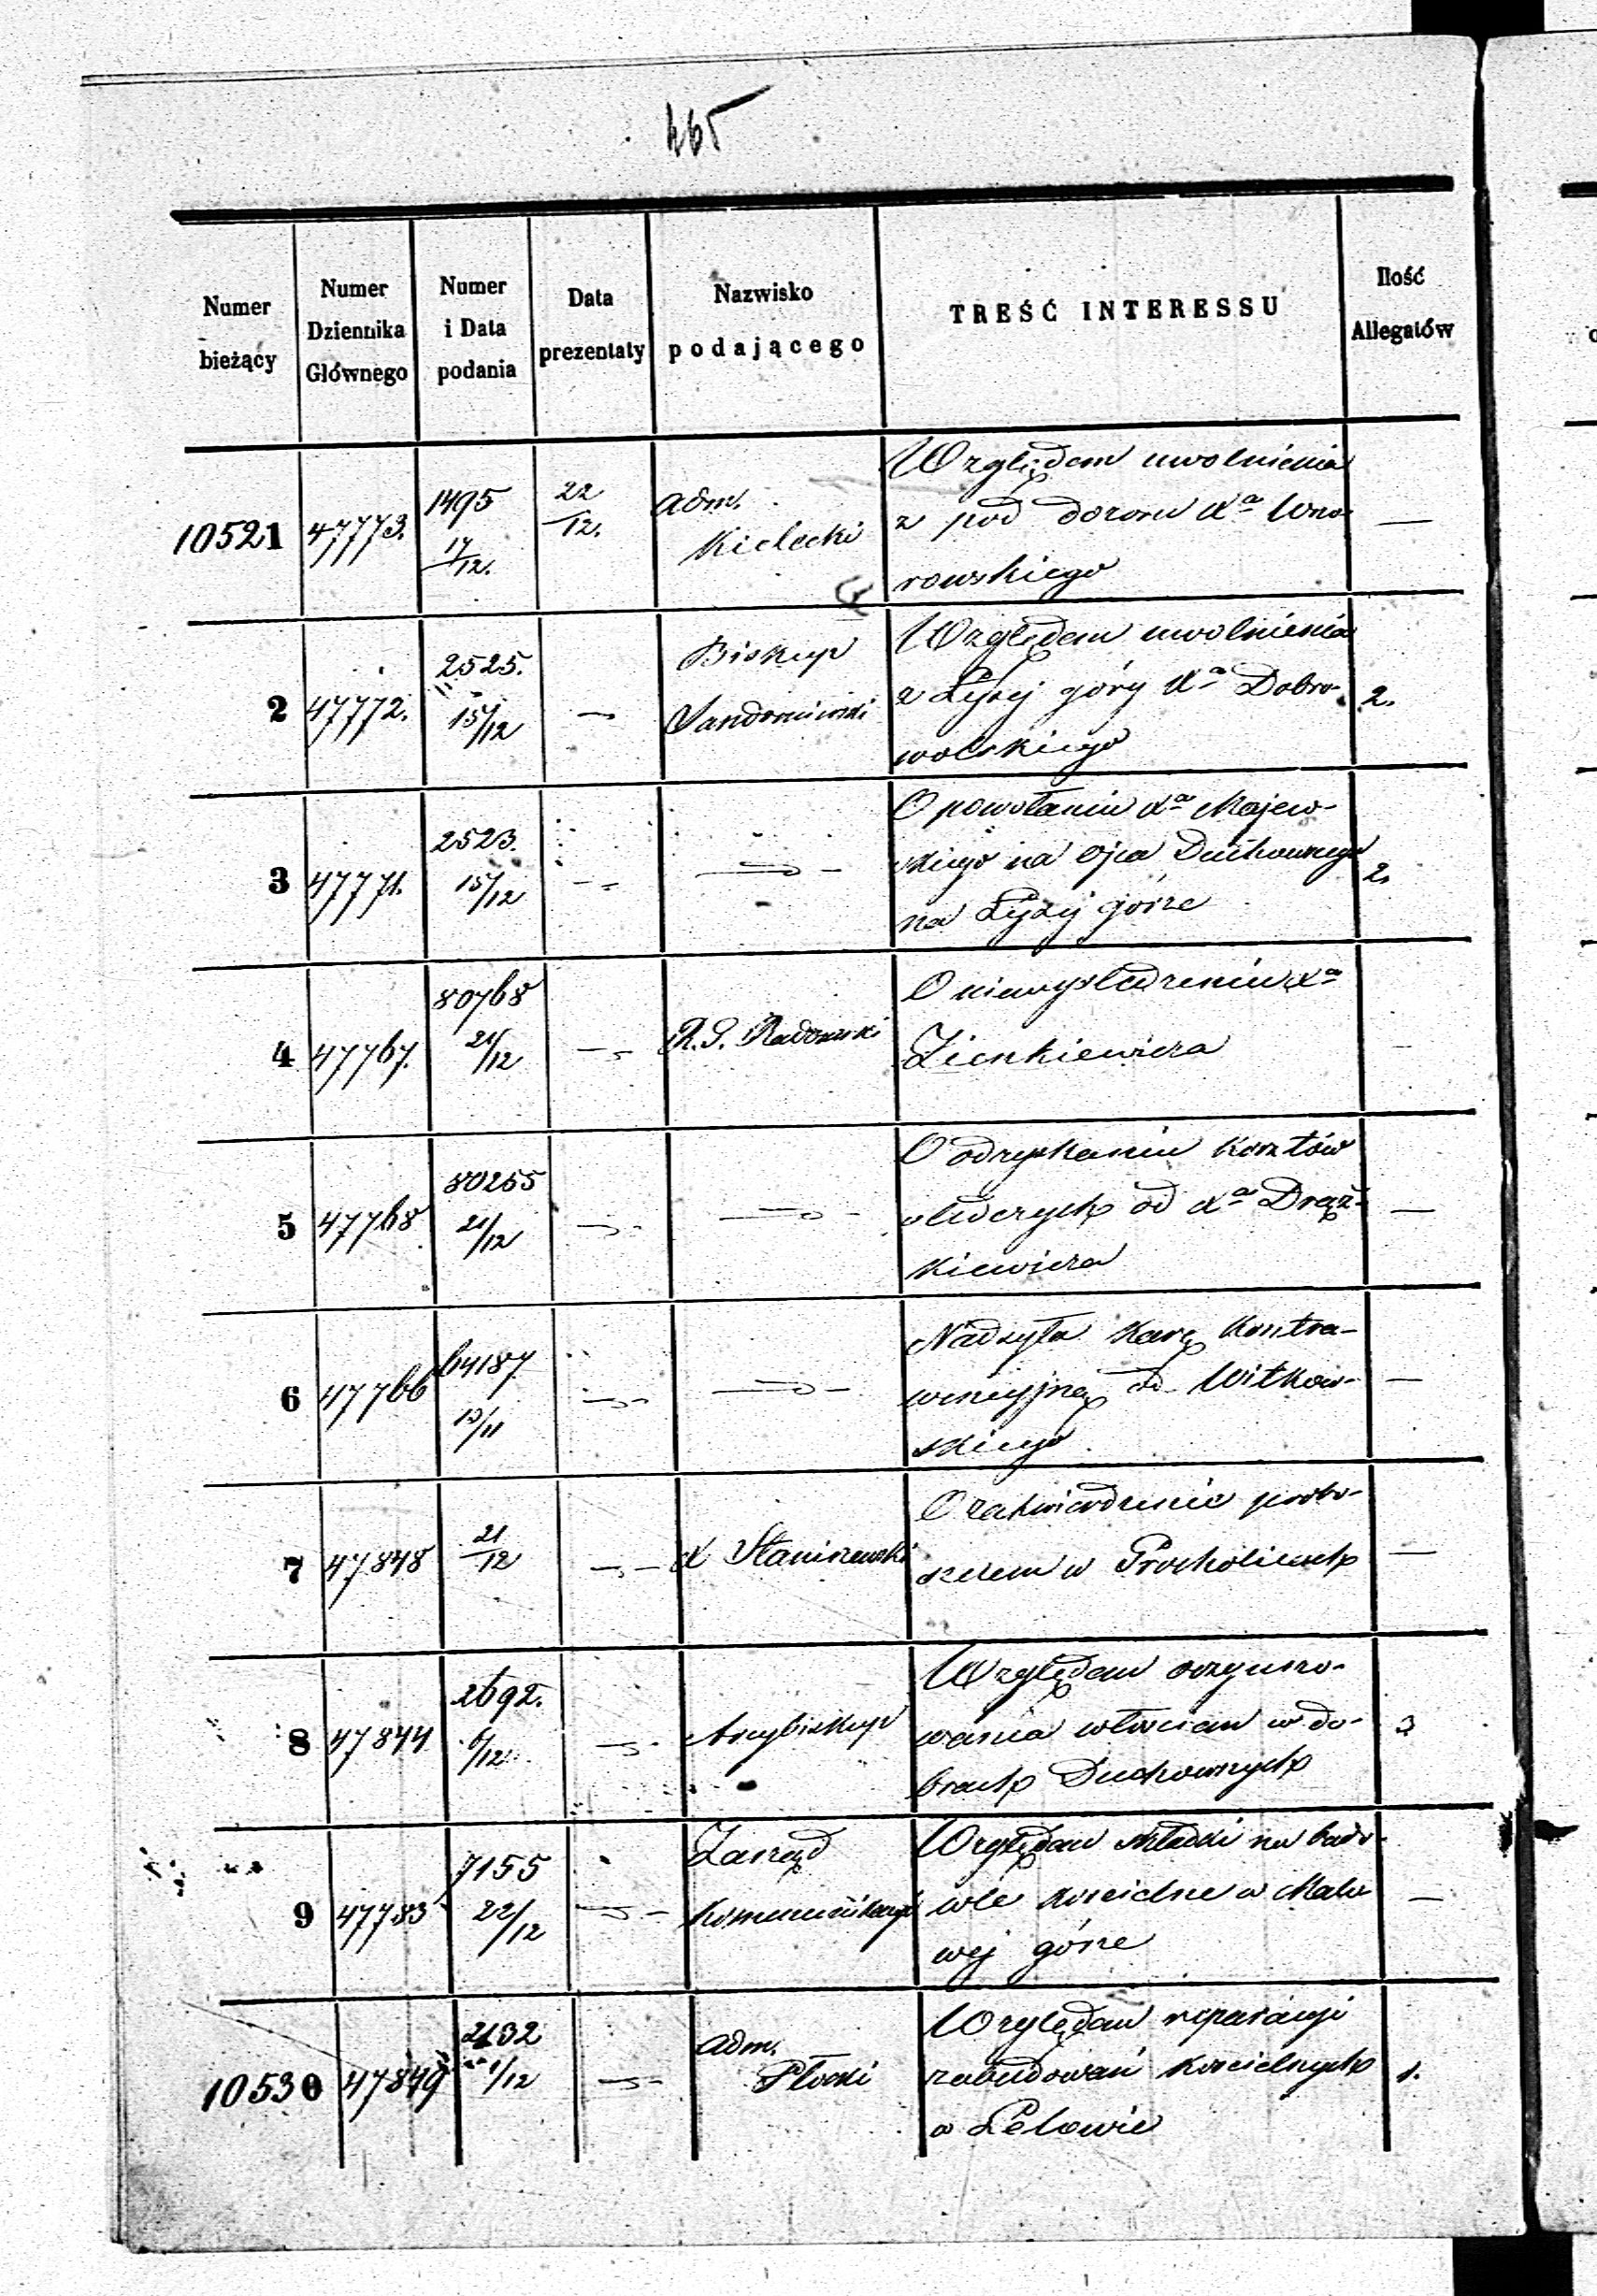 465
Numer bieżący
Numer Dziennika Głównego
Numer i Data podania
Data prezentaty
Nazwisko podającego
TREŚĆ INTERESSU
Ilość Allegatów
10521 47773. 1495 17/12. 22/12. Adm. Kielecki
Względem uwolnienia
z pod dozoru Xa Wno-
rowskiego
—
2 47772. 2525. 15/12 — Biskup Sandomierski
Względem uwolnienia
z Łysej góry Xa Dobro-
wolskiego
2.
3 47771. 2523. 15/12 — —„—
O powołaniu Xa Majew-
skiego na Ojca Duchownego
na Łysej górze
2.
4 47767. 80768 21/12 —„ R. G. Radomski
O niewyśledzeniu Xa
Zienkiewicza
—
5 47768 80255 21/12 —„— —„—
O odzyskaniu kosztów
śledczych od Xa Drąż-
kiewicza
—
6 47766 64187 13/11 —„— —„—
Nadsyła karę kontra-
wencyjną od Witkow-
skiego
—
7 47848 21/12 —„— X Staniszewski
O zatwierdzenie probo-
szczem w
—
8 47844 2692. 6/12 —„— Arcybiskup
Względem oczynszo-
wania włościan w do-
brach Duchownych
3
9 47783 7155 22/12 —„— Zarząd Kommunikacyi
Względem składki na budo-
wle kościelne w Mako-
wej górze
—
10530 47849 2132 1/12 —„— Adm. Płocki
Względem reparacyi
zabudowań kościelnych
w Lelowie
1.